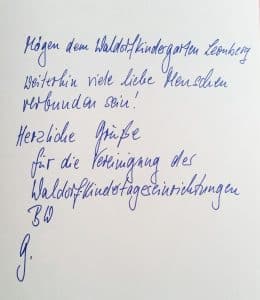 Mögen dem Waldorfkindergarten Leonberg
weiterhin viele liebe Menschen
verbunden sein!
Herzliche Grüße
für die Vereinigung der
Waldorf-Kindertageseinrichtungen
BW
G.